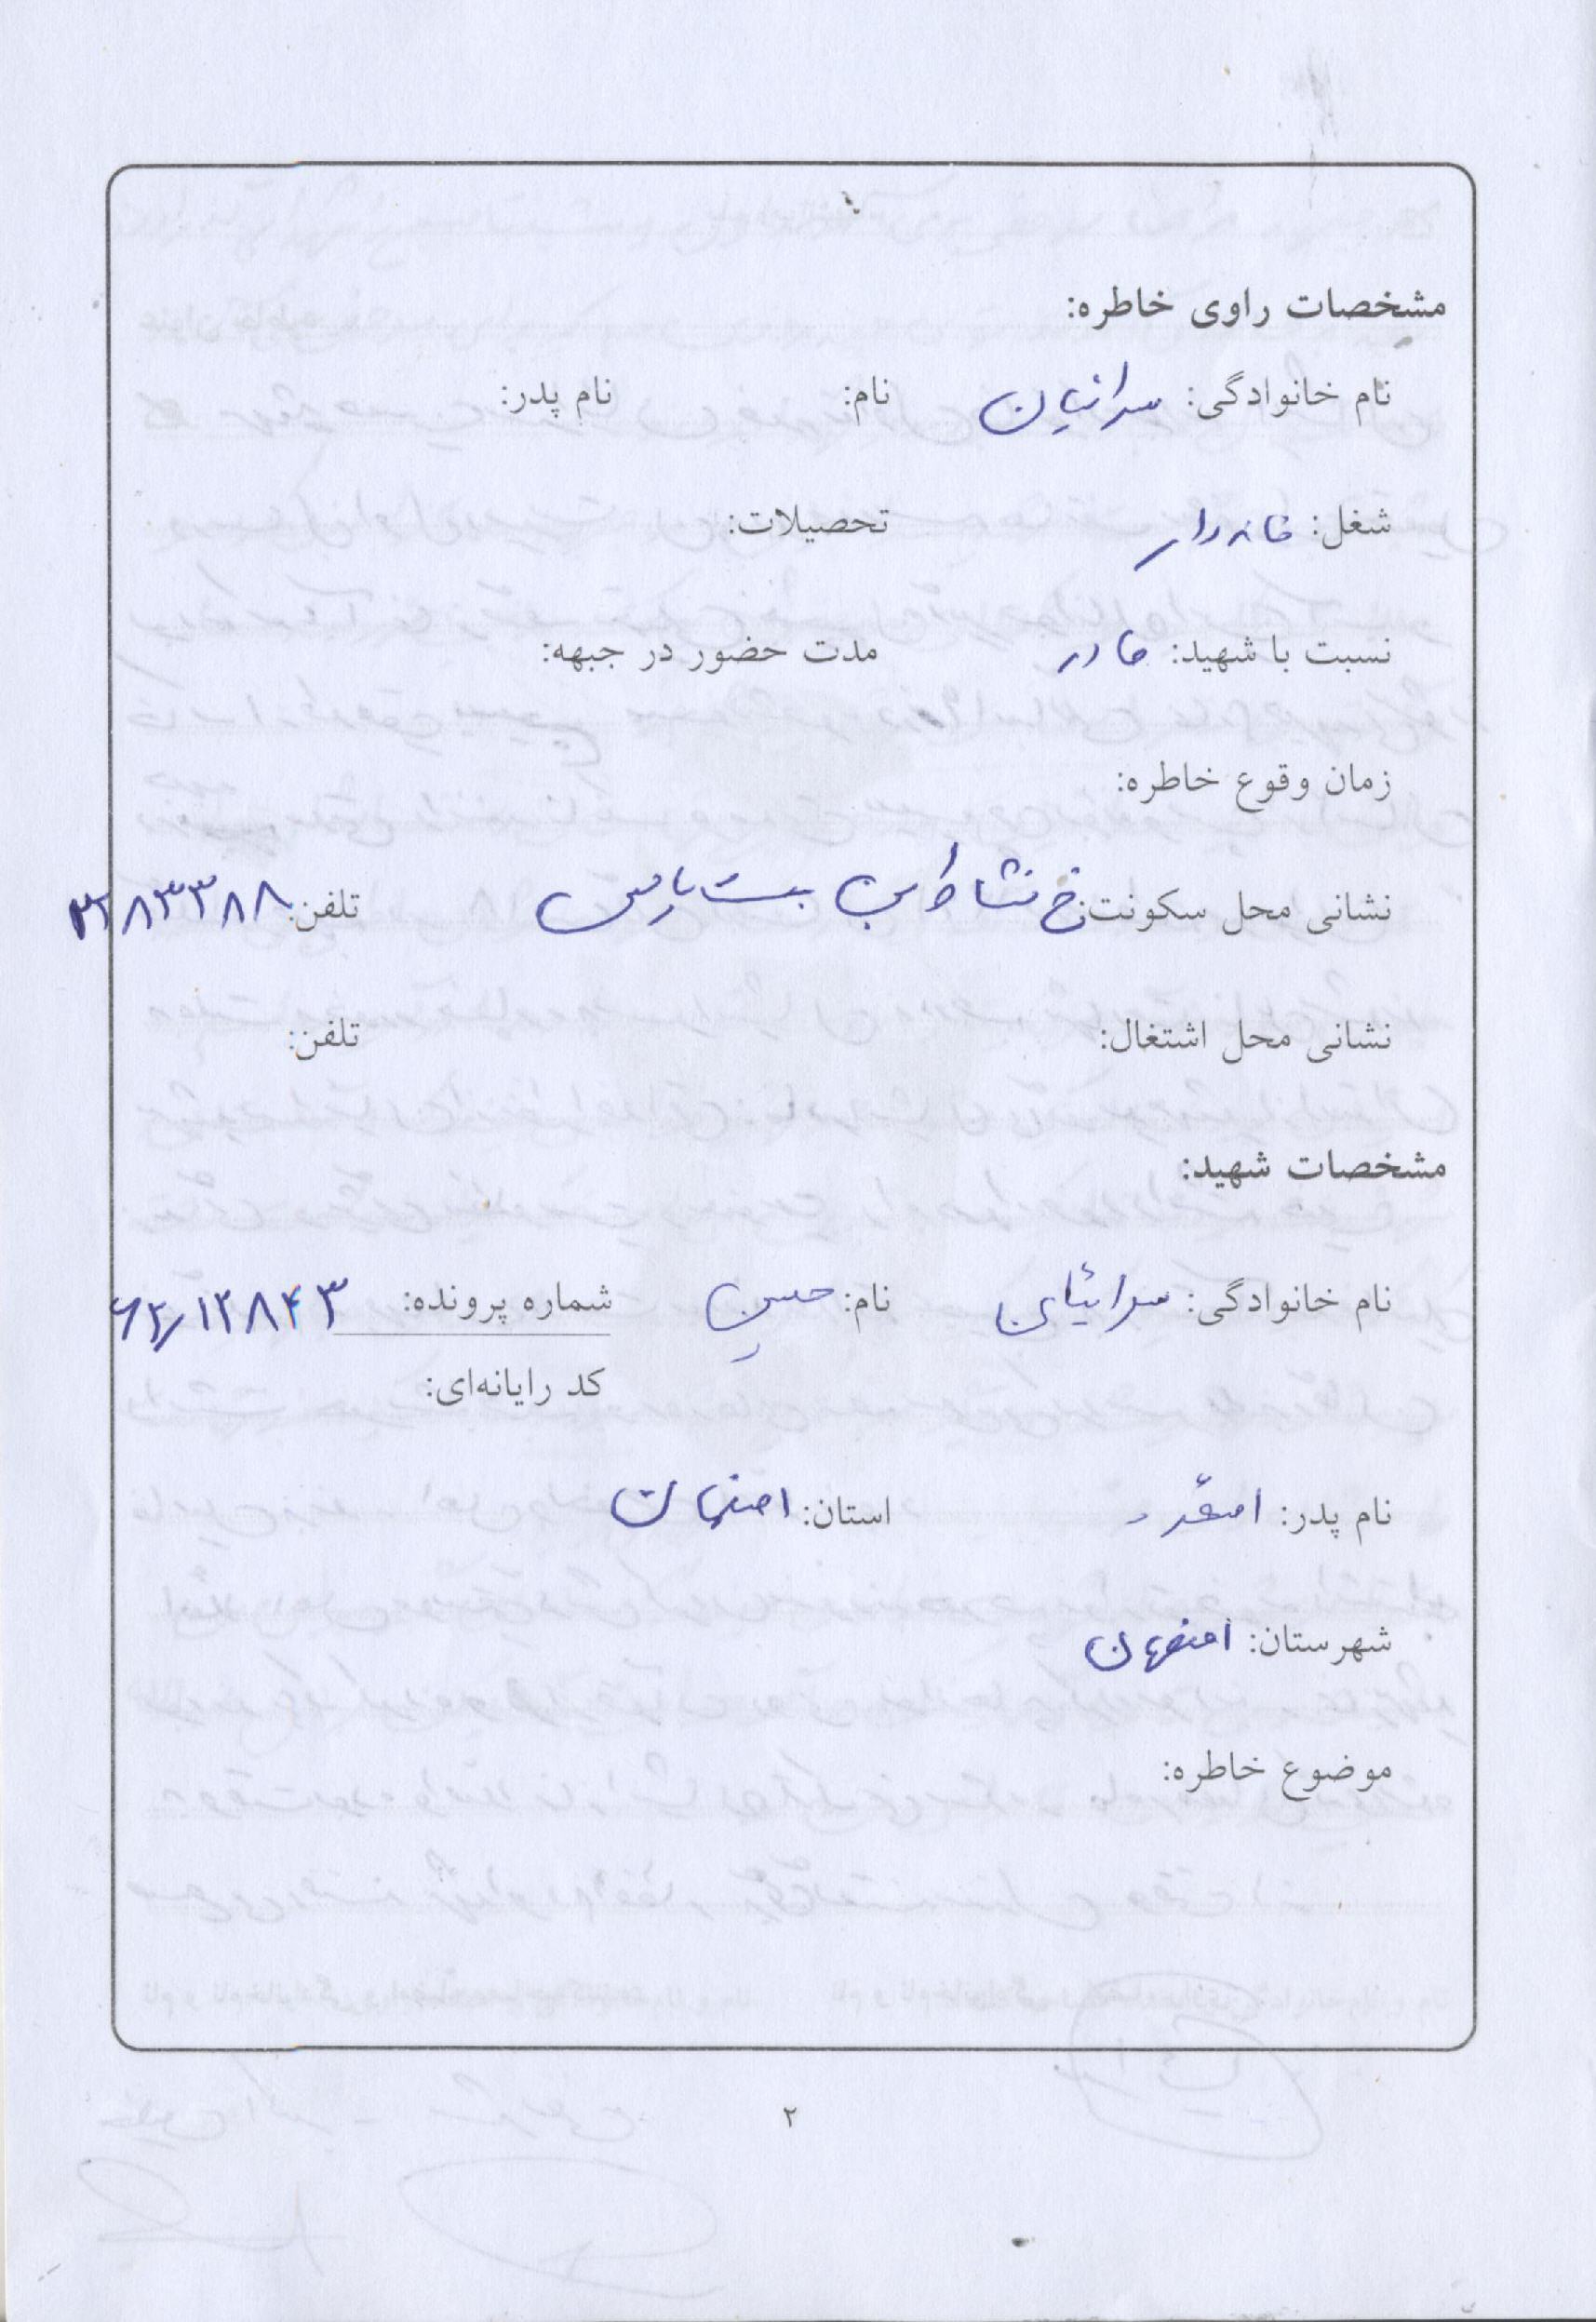 مشخصات راوی خاطره:
نام خانوادگی: سرائیان نام: نام پدر:
شغل: خانه دار تحصیلات:
نسبت با شهید: مادر مدت حضور در جبهه:
زمان وقوع خاطره:
نشانی محل سکونت: خ نشاط بن بست یاس تلفن: ۲۲۸۳۳۸۸
نشانی محل اشتغال: تلفن:
مشخصات شهید:
نام خانوادگی: سرائیان نام: حسین شماره پرونده: ۶۲/۱۲۸۴۳
کد رایانه‌ای:
نام پدر: استان: اصفهان
شهرستان: اصفهان
موضوع خاطره:
۲